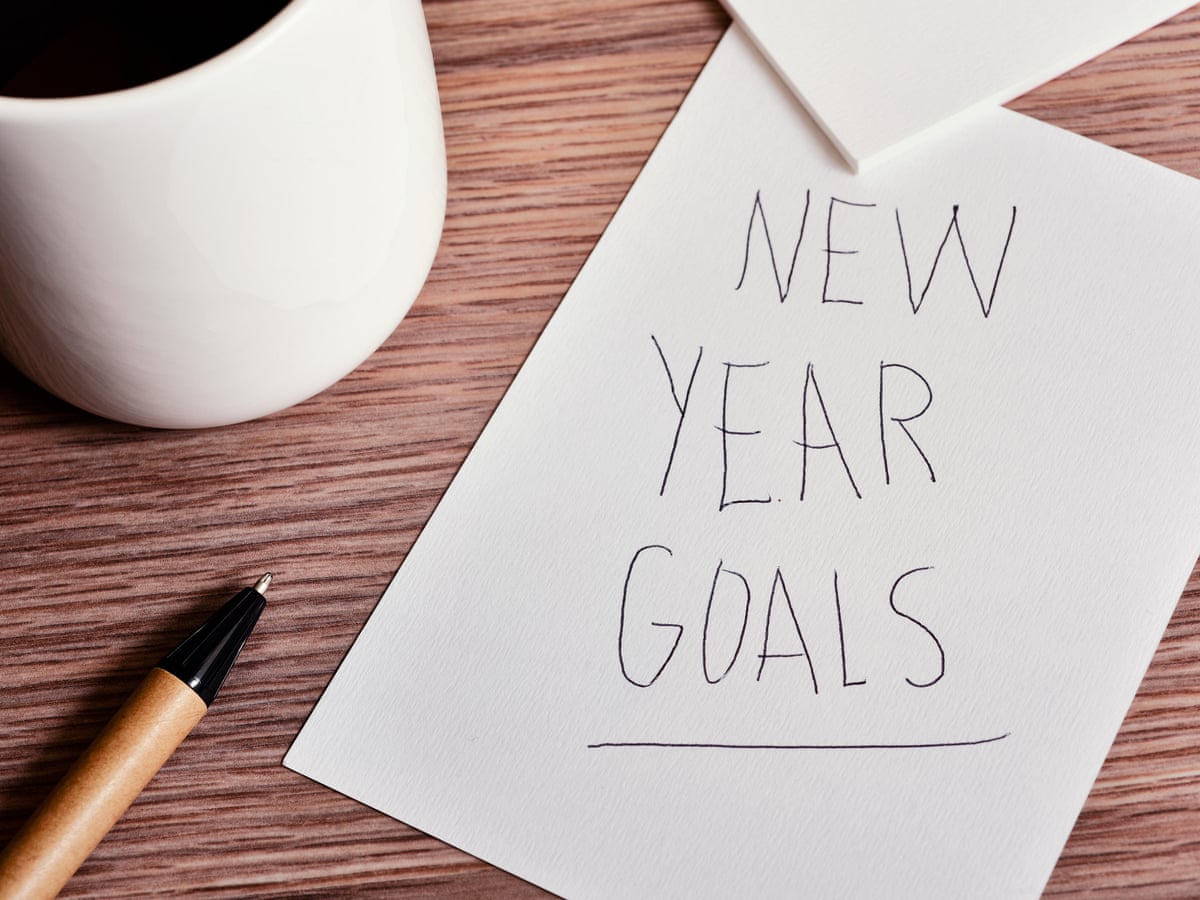 NEW
YEAR
GOALS